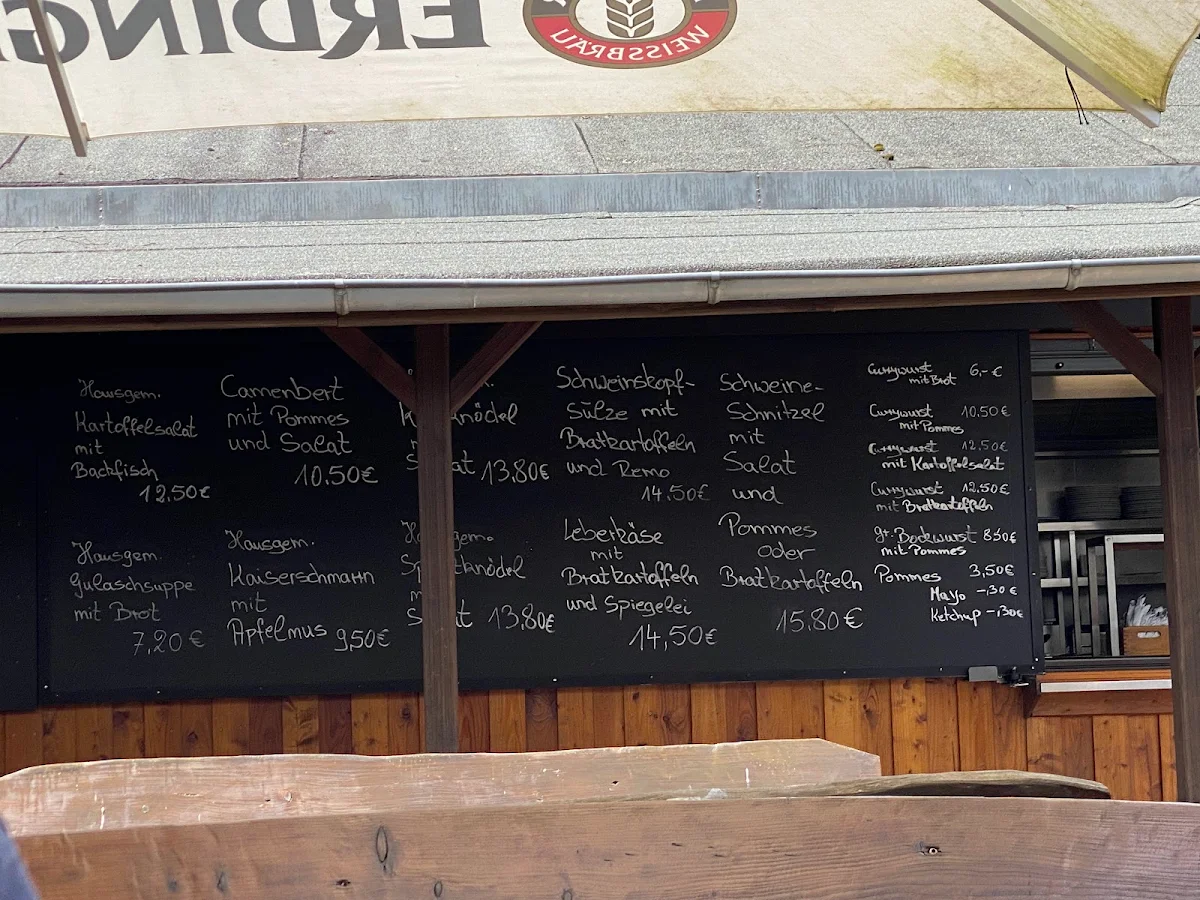 ERDING
WEISSBRÄU
Hausgem.
Kartoffelsalat
mit
Backfisch
12,50€
Camenbert
mit Pommes
und Salat
10.50€
13,80€
Schweinskopf-
Sülze mit
Bratkartoffeln
und Remo
14.50€
Schweine-
Schnitzel
mit
Salat
und
Pommes
oder
Bratkartoffeln
15.80€
Currywurst 6,-€
mit Brot
Currywurst 10.50€
mit Pommes
Currywurst 12,50€
mit Kartoffelsalat
Currywurst 12,50€
mit Bratkartoffeln
gr. Bockwurst 8,50€
mit Pommes
Pommes 3,50€
Mayo -,30€
Ketchup -,30€
Hausgem.
Gulaschsuppe
mit Brot
7,20€
Hausgem.
Kaiserschmarrn
mit
Apfelmus 9,50€
13,80€
Leberkäse
mit
Bratkartoffeln
und Spiegelei
14,50€